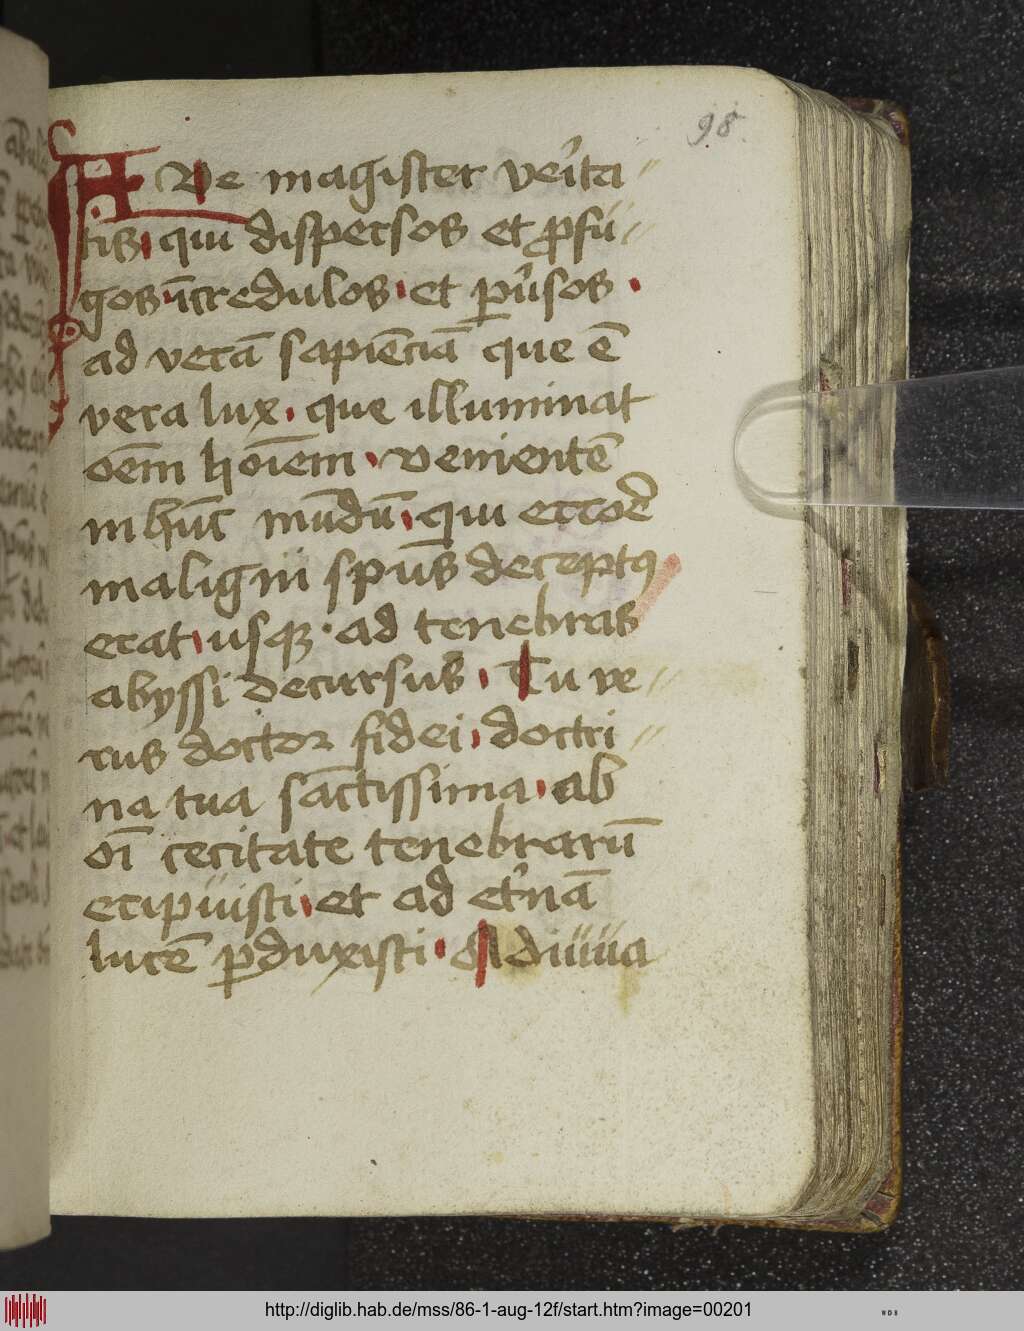 98
Ave magister veŕita
tis qui dispersos et ꝓfū
gos īcredulos et ꝑũsos
ad verā sapiēciā que ē
vera lux que illuminat
oēm hoīem venientē
in hūc mūdū qui errore
maligni spūs deceptꝰ
erat usqꝫ ad tenebras
abyssi decursus Tu ve
rus doctor fidei doctri
na tua sāctissima ab
oī cecitate tenebrarū
eripuisti et ad et̉nā
lucē ꝑduxisti Adiuua
http://diglib.hab.de/mss/86-1-aug-12f/start.htm?image=00201